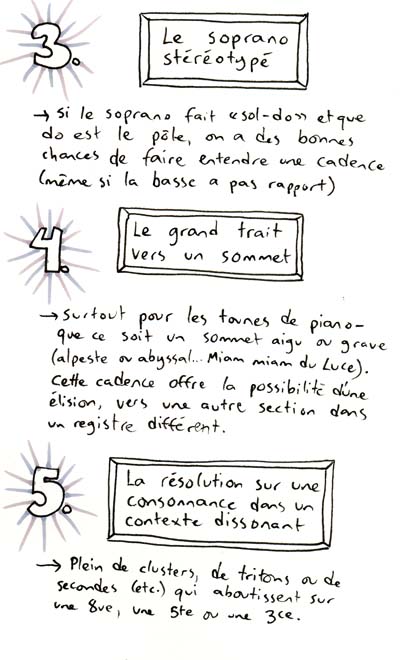 3.
Le soprano
stéréotypé
→ si le soprano fait «sol-do» et que
do est le pôle, on a des bonnes
chances de faire entendre une cadence
(même si la basse a pas rapport)
4.
Le grand trait
vers un sommet
→ surtout pour les tounes de piano-
que ce soit un sommet aigu ou grave
(alpeste ou abyssal... Miam miam du Luce).
Cette cadence offre la possibilité d'une
élision, vers une autre section dans
un registre différent.
5.
La résolution sur une
consonnance dans un
contexte dissonant
→ Plein de clusters, de tritons ou de
secondes (etc.) qui aboutissent sur
une 8ve, une 5te ou une 3ce.